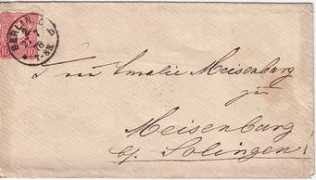 BERLIN C
Frau Emalie Meisenburg
zu
Meisenburg
b/ Solingen!